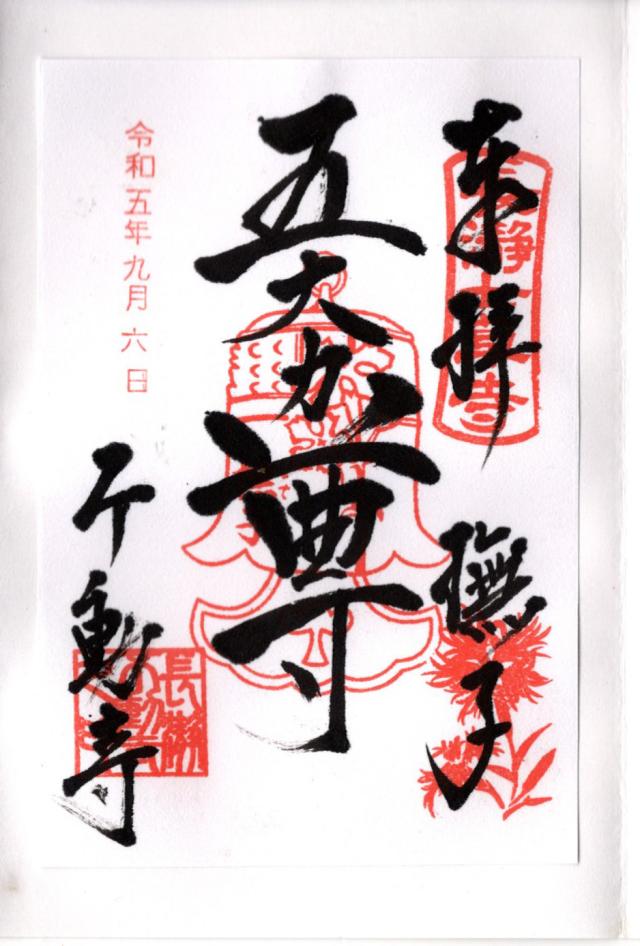 奉拝
撫子
五大力尊
令和五年九月六日
不動寺
長瀞